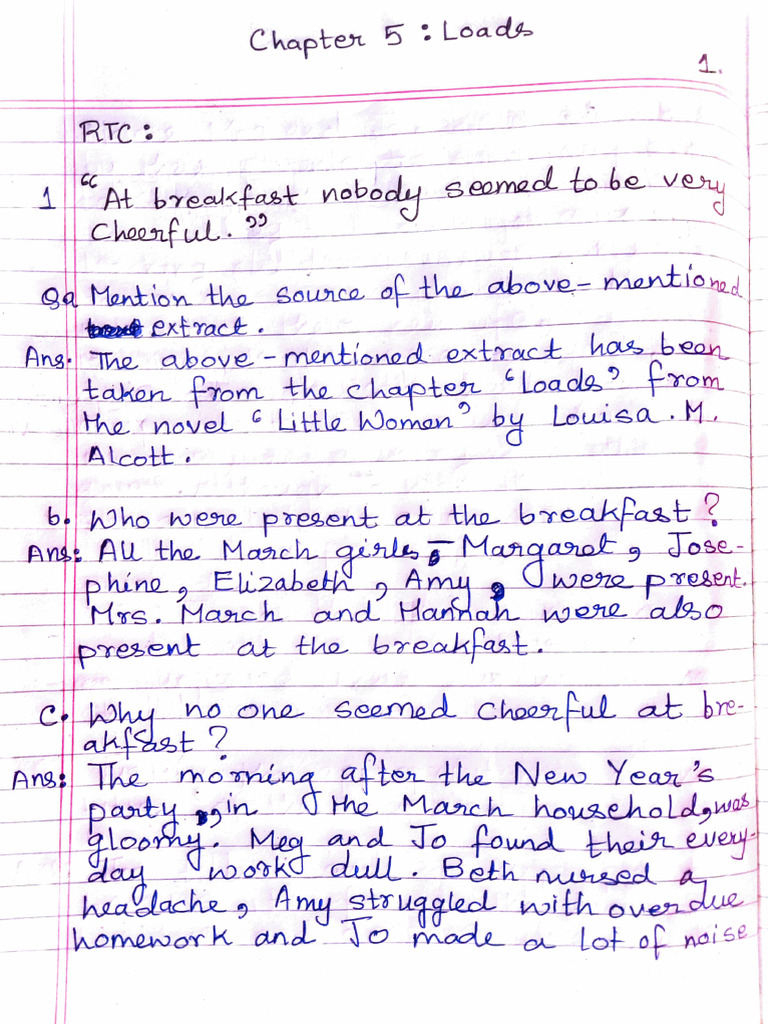 Chapter 5 : Loads
1.
RTC :
1 "At breakfast nobody seemed to be very
Cheerful."
Qa Mention the source of the above-mentioned
extract.
Ans. The above-mentioned extract has been
taken from the chapter 'Loads' from
the novel 'Little Women' by Louisa. M.
Alcott.
b. Who were present at the breakfast?
Ans: All the March girls, - Margaret, Jose-
phine, Elizabeth, Amy, were present.
Mrs. March and Hannah were also
present at the breakfast.
C. Why no one seemed cheerful at bre-
akfast?
Ans: The morning after the New Year's
party, in the March household, was
gloomy. Meg and Jo found their every-
day work dull. Beth nursed a
headache, Amy struggled with overdue
homework and Jo made a lot of noise